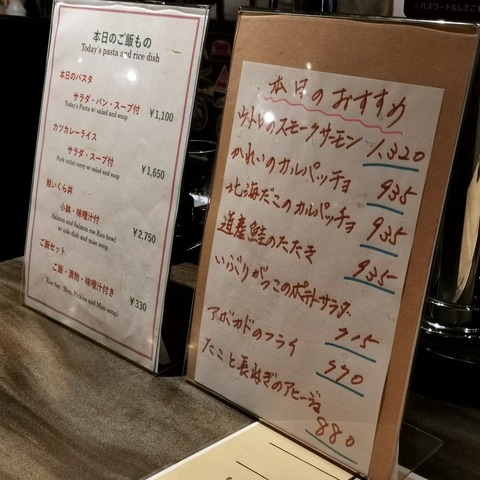 本日のご飯もの
Today's pasta and rice dish
本日のパスタ
サラダ・パン・スープ付
Today's Pasta w/ salad and soup
¥1,100
カツカレーライス
サラダ・スープ付
Pork cutlet curry w/ salad and soup
¥1,650
鮭いくら丼
小鉢・味噌汁付
Salmon and Salmon roe Rice bowl
w/ side dish and miso soup
¥2,750
ご飯セット
ご飯・漬物・味噌汁付き
Rice Set (Rice, Pickles and Miso soup)
¥330
本日のおすすめ
ウトロのスモークサーモン 1,320
かれいのカルパッチョ 935
北海だこのカルパッチョ 935
道産鮭のたたき 935
いぶりがっこのポテトサラダ 715
アボカドのフライ 770
たこと長ねぎのアヒージョ 880